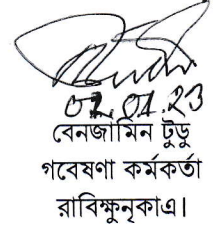 02.01.23
বেনজামিন টুডু
গবেষণা কর্মকর্তা
রাবিক্ষুনৃকাএ।